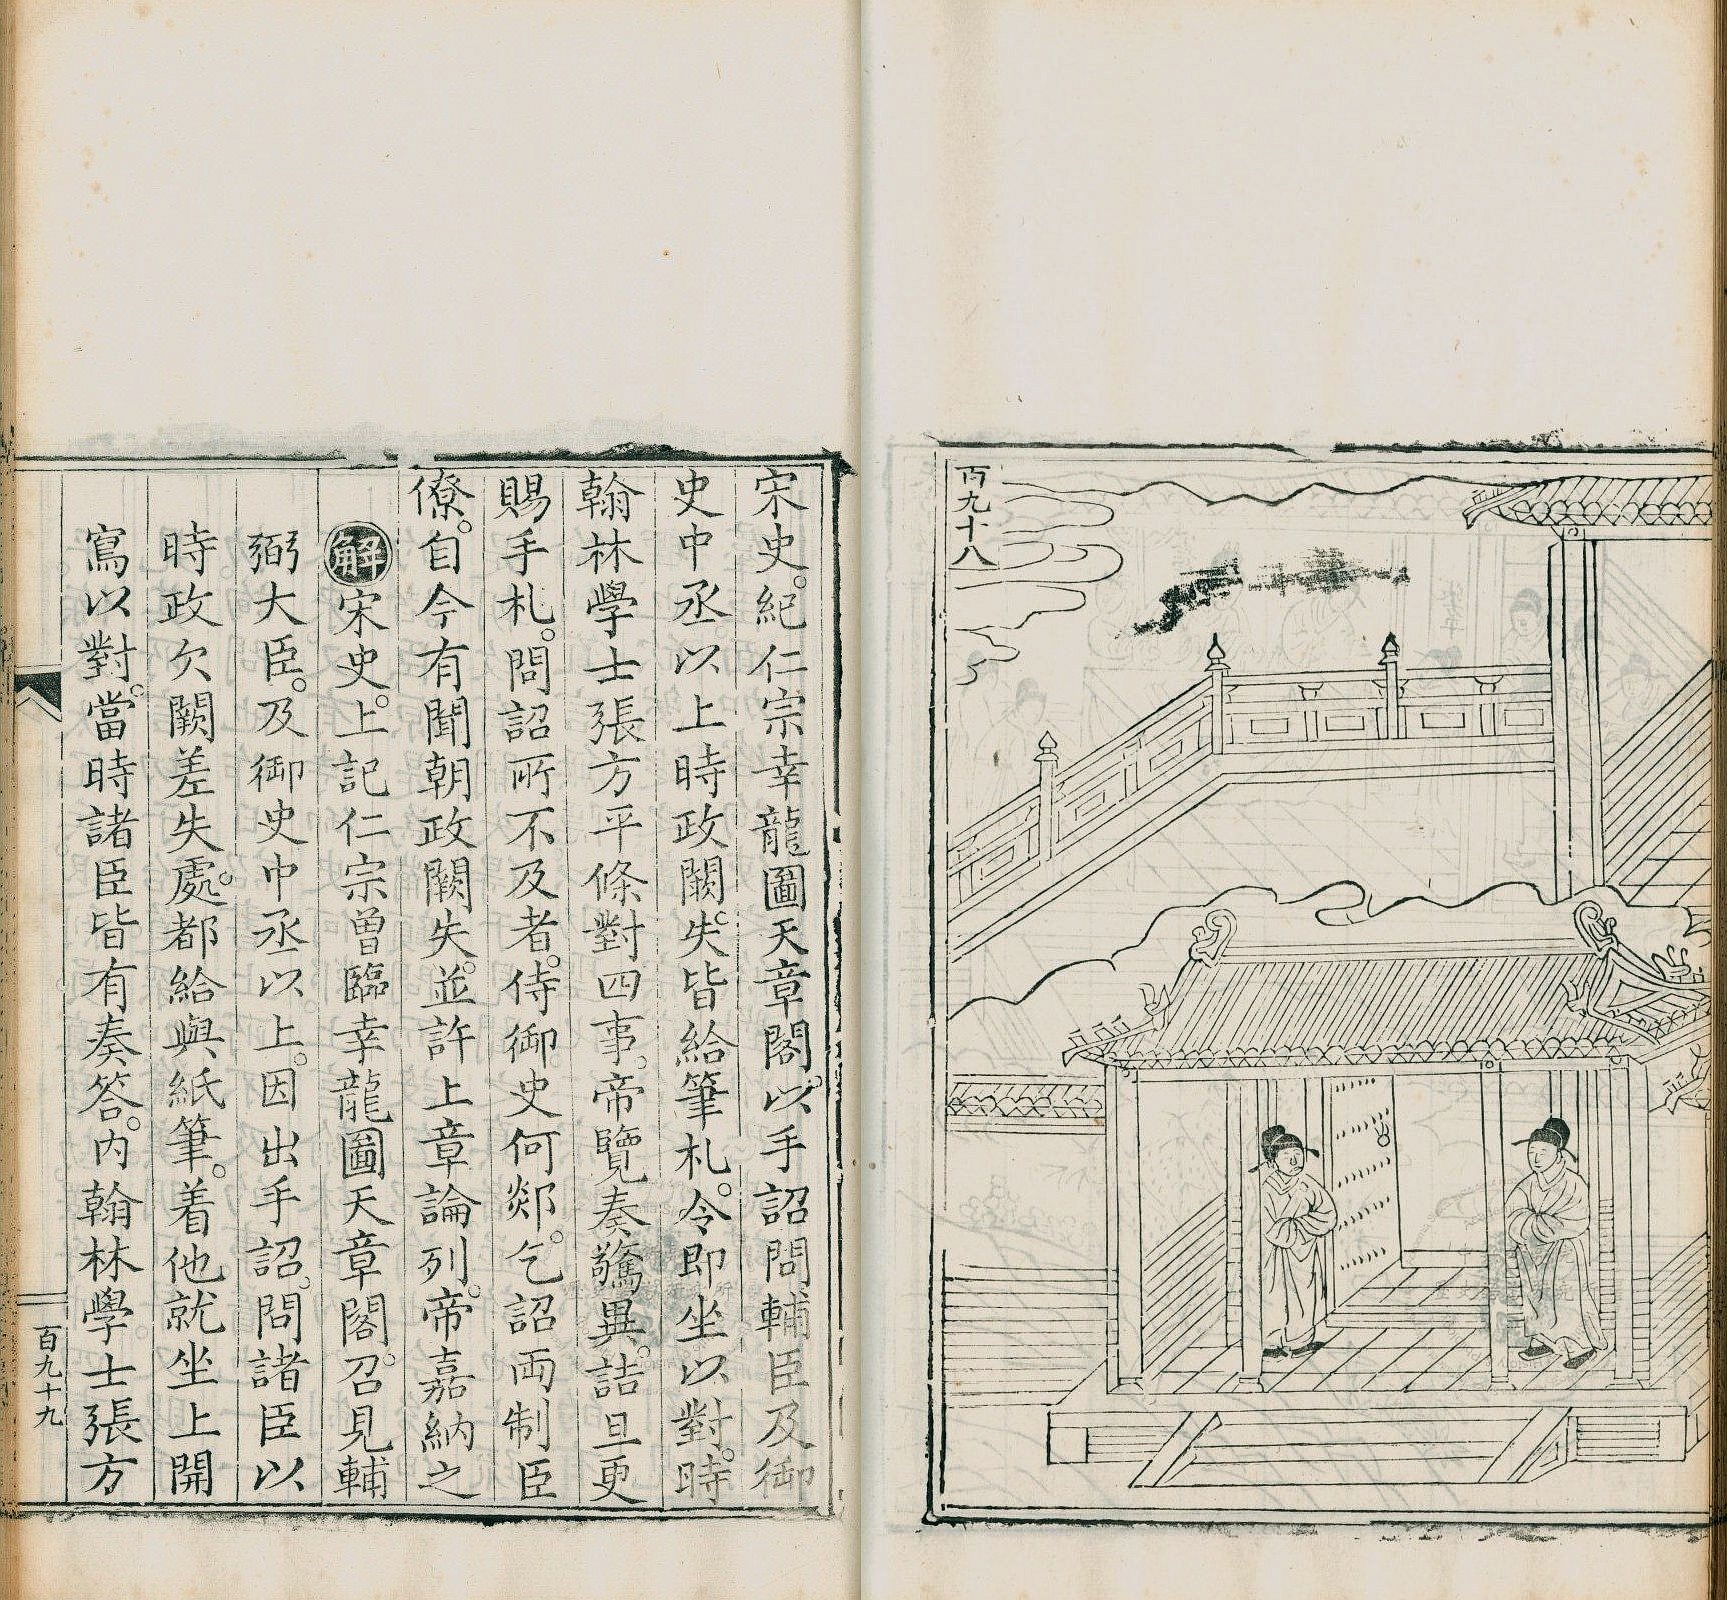 百九十八
宋史。紀仁宗幸龍圖天章閣。以手詔問輔臣及御
史中丞以上時政闕。失皆給筆札。令即坐以對。時
翰林學士張方平條對四事。帝覽奏驚異。詰旦更
賜手札。問詔所不及者。侍御史何郯。乞詔兩制臣
僚。自今有聞朝政闕失。並許上章論列。帝嘉納之
解宋史。上記仁宗曾臨幸龍圖天章閣。召見輔
弼大臣。及御史中丞以上。因出手詔。問諸臣以
時政欠闕差失處。都給與紙筆。着他就坐上開
寫以對。當時諸臣皆有奏答。內翰林學士張方
百九十九